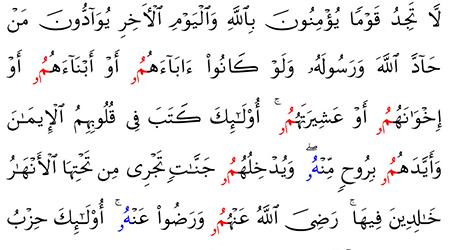 لَّا تَجِدُ قَوْمًا يُؤْمِنُونَ بِٱللَّهِ وَٱلْيَوْمِ ٱلْأَخِرِ يُوَآدُّونَ مَنْ
حَآدَّ ٱللَّهَ وَرَسُولَهُۥ وَلَوْ كَانُوٓا۟ ءَابَآءَهُمُۥ أَوْ أَبْنَآءَهُمُۥ أَوْ
إِخْوَٰنَهُمُۥ أَوْ عَشِيرَتَهُمُۥ ۚ أُو۟لَٰٓئِكَ كَتَبَ فِى قُلُوبِهِمُ ٱلْإِيمَٰنَ
وَأَيَّدَهُمُۥ بِرُوحٍ مِّنْهُۥ ۖ وَيُدْخِلُهُمُۥ جَنَّٰتٍ تَجْرِى مِن تَحْتِهَا ٱلْأَنْهَٰرُ
خَٰلِدِينَ فِيهَا ۚ رَضِىَ ٱللَّهُ عَنْهُمُۥ وَرَضُوا۟ عَنْهُۥ ۚ أُو۟لَٰٓئِكَ حِزْبُ